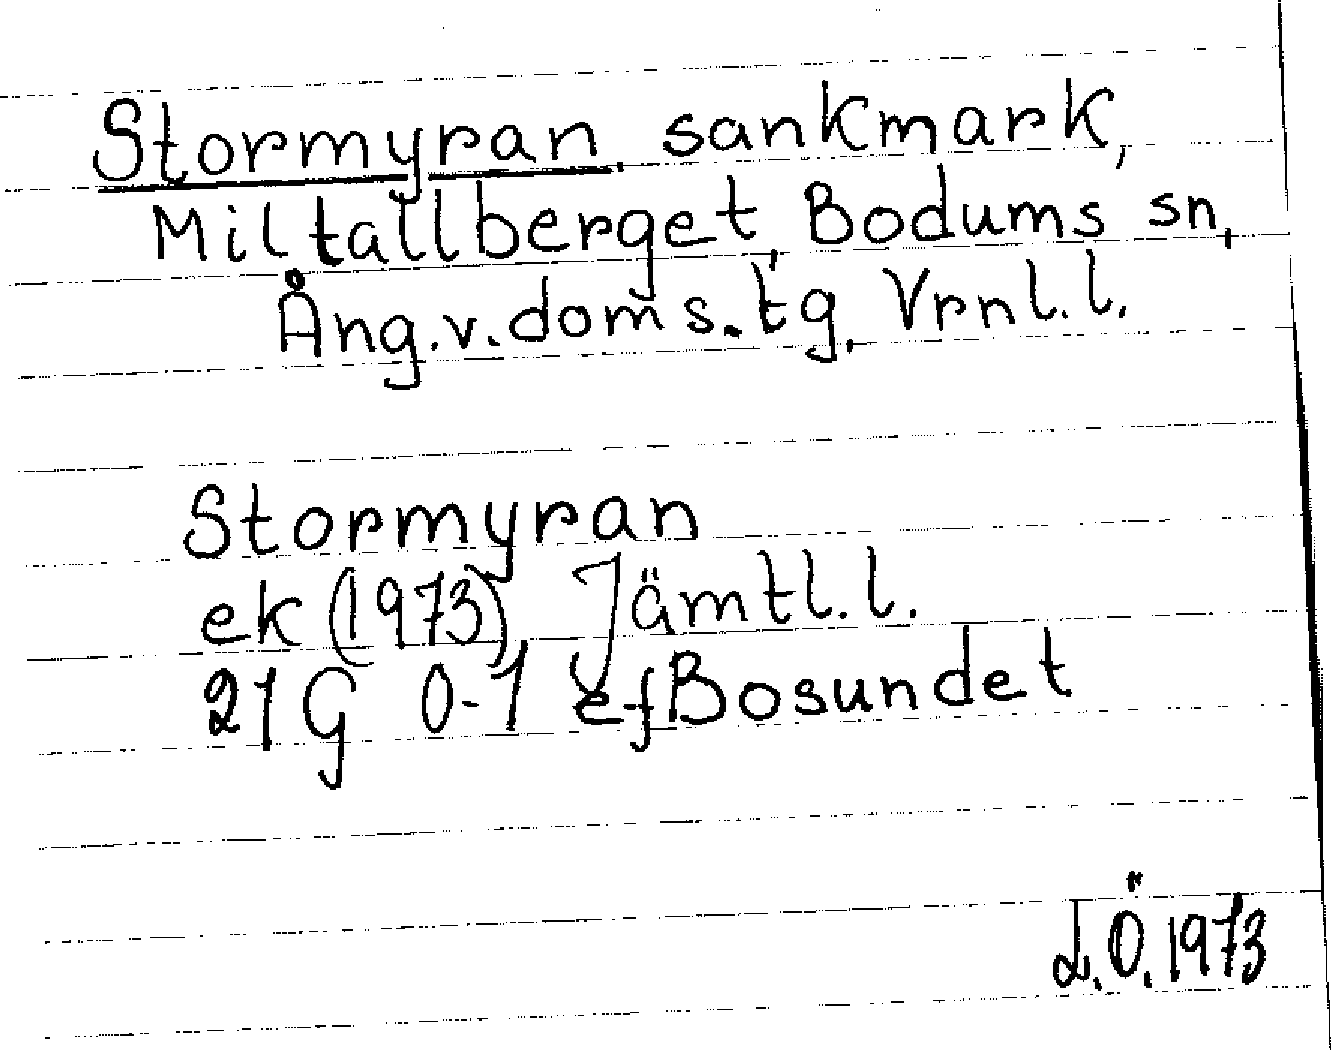 Stormyran, sankmark,
Miltallberget, Bodums sn,
Ång.v.doms.tg, Vrnl.l.
Stormyran
ek (1973), Jämtl.l.
21G 0-1 ef Bosundet
L.Ö. 1973